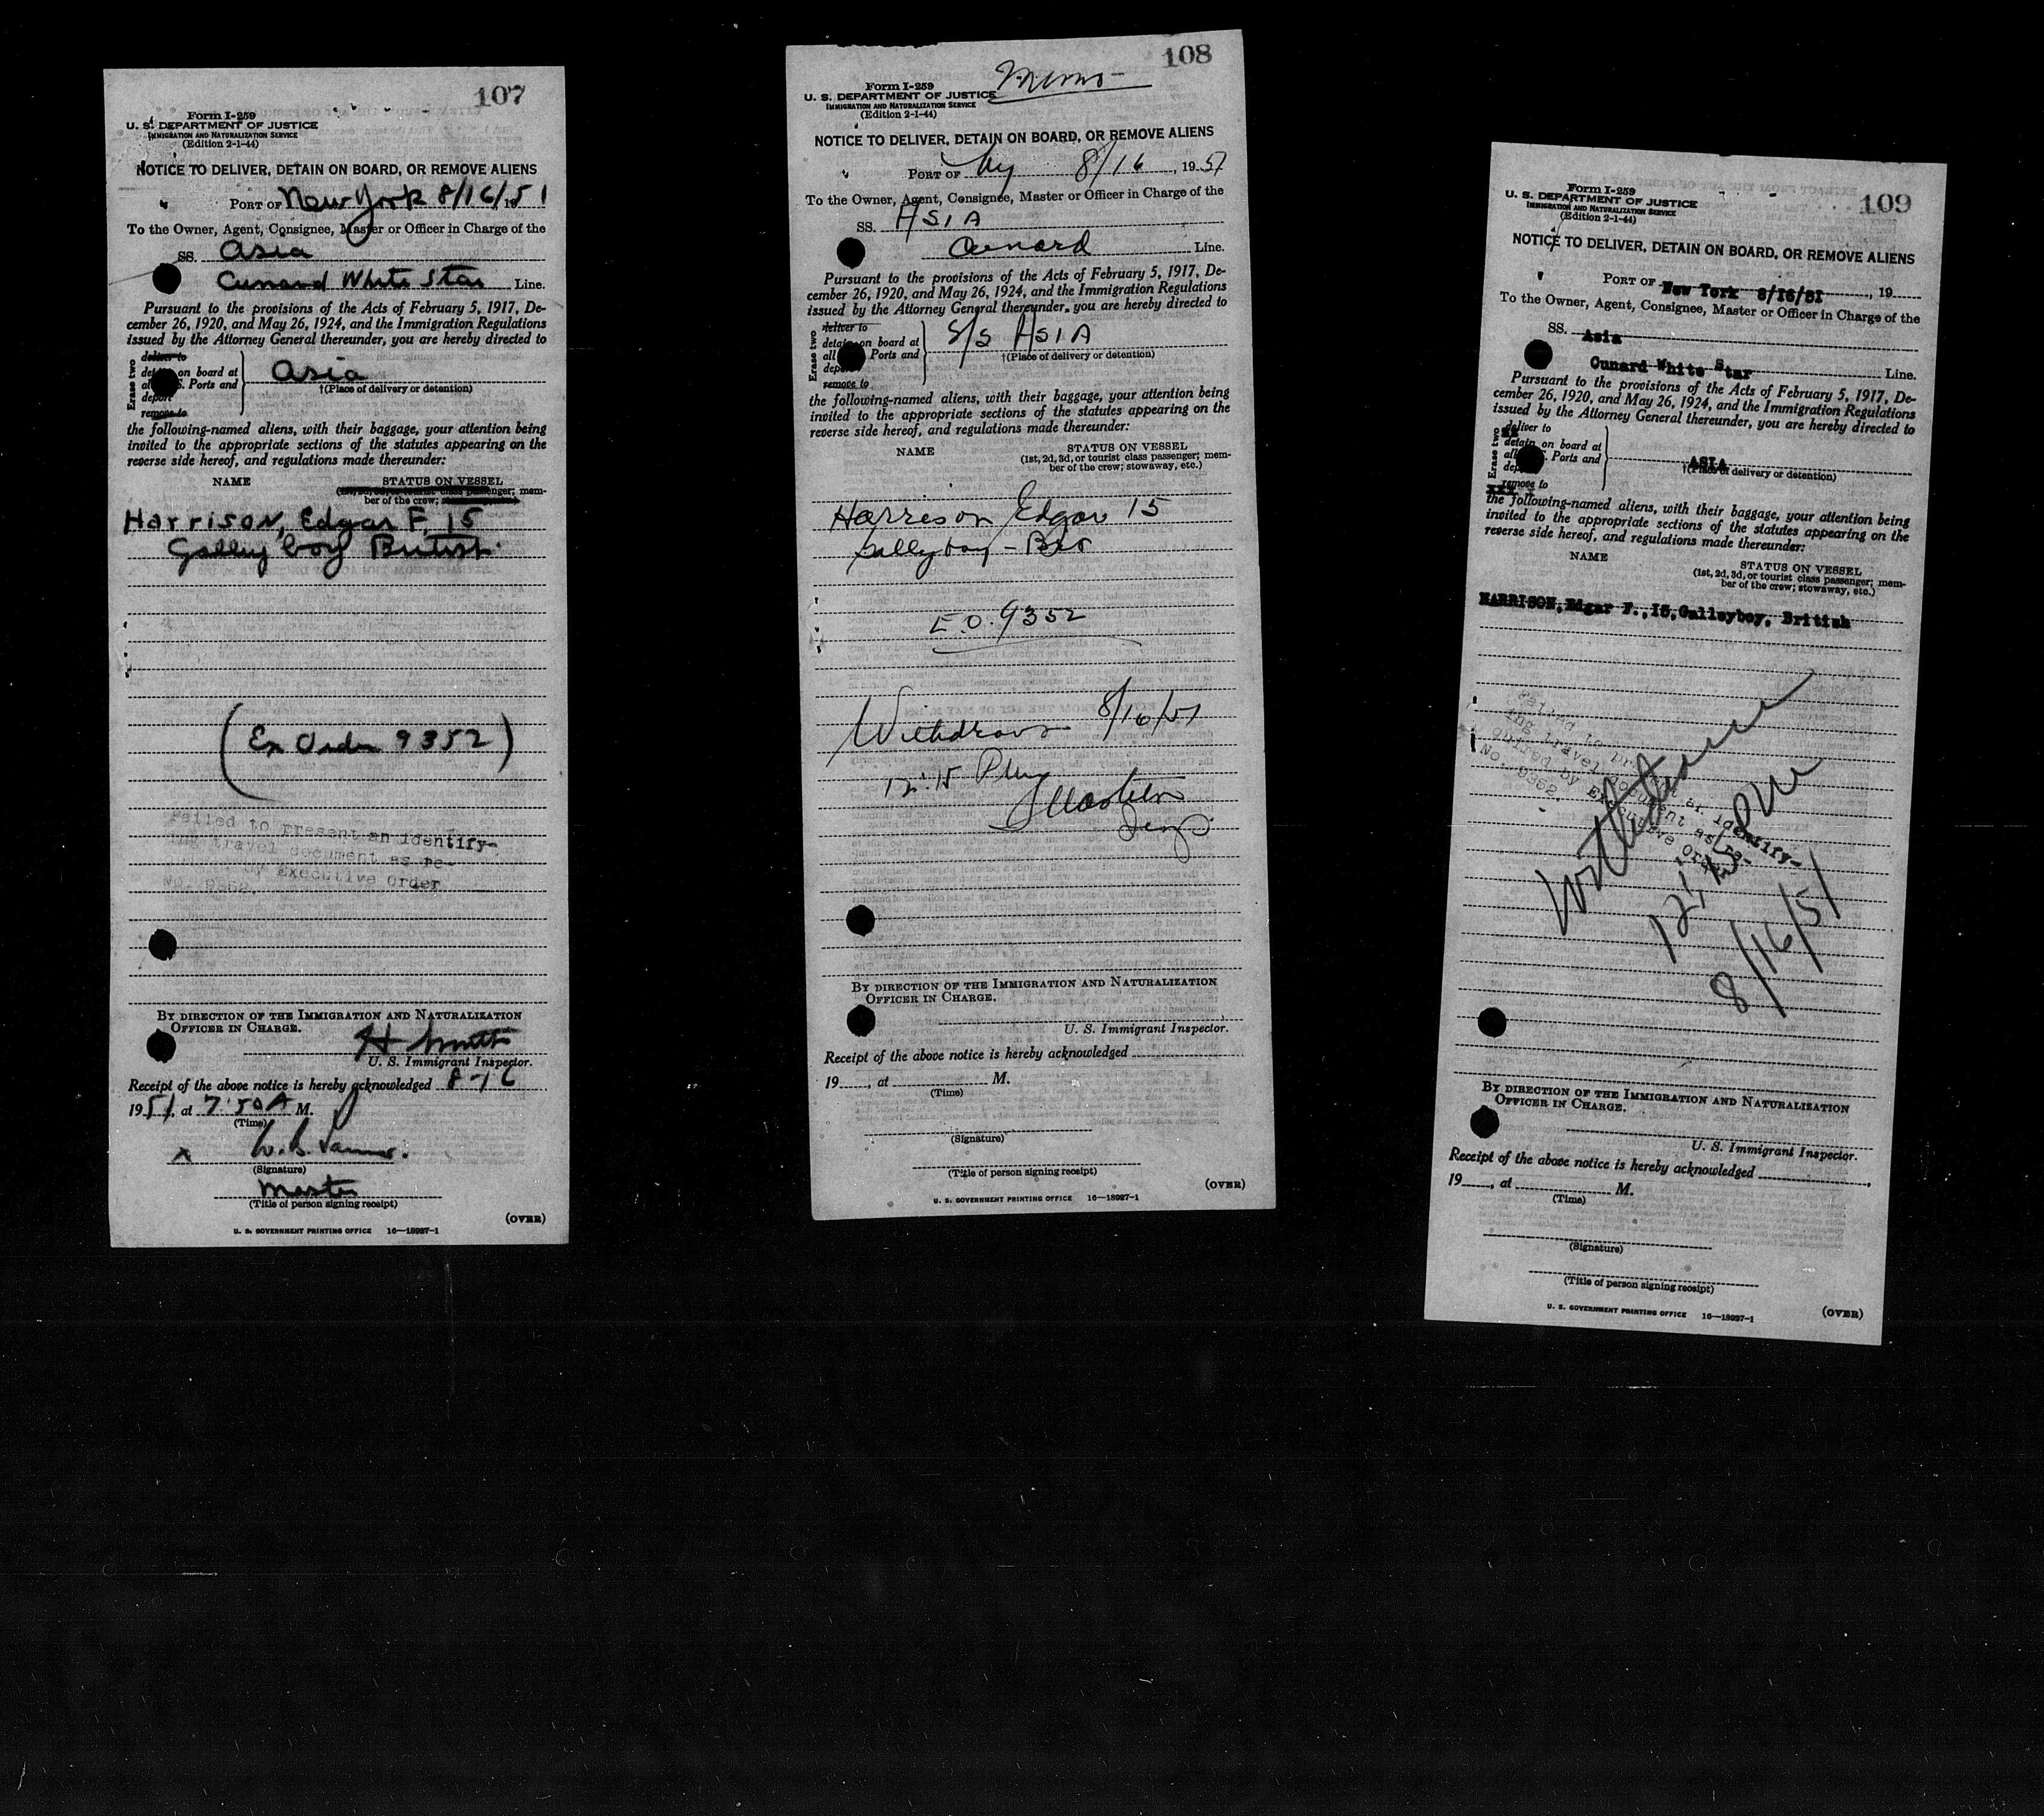 107
Form I-259
U. S. DEPARTMENT OF JUSTICE
IMMIGRATION AND NATURALIZATION SERVICE
(Edition 2-1-44)
NOTICE TO DELIVER, DETAIN ON BOARD, OR REMOVE ALIENS
PORT OF New York 8/16/51
To the Owner, Agent, Consignee, Master or Officer in Charge of the
SS. Asia
Cunard White Star Line.
Pursuant to the provisions of the Acts of February 5, 1917, De-
cember 26, 1920, and May 26, 1924, and the Immigration Regulations
issued by the Attorney General thereunder, you are hereby directed to
Erase two
deliver to
on board at
Ports and
deport
remove to
Asia
†(Place of delivery or detention)
the following-named aliens, with their baggage, your attention being
invited to the appropriate sections of the statutes appearing on the
reverse side hereof, and regulations made thereunder:
NAME STATUS ON VESSEL
(1st, 2d, 3d, or tourist class passenger; mem-
ber of the crew;
Harrison, Edgar F 15
Galley boy British
(Ex Order 9352)
Failed to present an identify-
ing travel document as re-
by Executive Order
No. 9352.
BY DIRECTION OF THE IMMIGRATION AND NATURALIZATION
OFFICER IN CHARGE.
H Smith
U. S. Immigrant Inspector.
Receipt of the above notice is hereby acknowledged 8-16
1951, at 7:50 A M.
(Time)
x W. B.
(Signature)
Master
(Title of person signing receipt)
(OVER)
U. S. GOVERNMENT PRINTING OFFICE 16—18927-1
108
Memo
Form I-259
U. S. DEPARTMENT OF JUSTICE
IMMIGRATION AND NATURALIZATION SERVICE
(Edition 2-1-44)
NOTICE TO DELIVER, DETAIN ON BOARD, OR REMOVE ALIENS
PORT OF Ny 8/16, 1951
To the Owner, Agent, Consignee, Master or Officer in Charge of the
SS. ASIA
Cunard Line.
Pursuant to the provisions of the Acts of February 5, 1917, De-
cember 26, 1920, and May 26, 1924, and the Immigration Regulations
issued by the Attorney General thereunder, you are hereby directed to
Erase two
deliver to
detain on board at
all Ports and
remove to
S/S ASIA
†(Place of delivery or detention)
the following-named aliens, with their baggage, your attention being
invited to the appropriate sections of the statutes appearing on the
reverse side hereof, and regulations made thereunder:
NAME STATUS ON VESSEL
(1st, 2d, 3d, or tourist class passenger; mem-
ber of the crew; stowaway, etc.)
Harrison Edgar 15
Galleyboy - Br
E.O. 9352
Withdrawn 8/16/51
12:15 PM
BY DIRECTION OF THE IMMIGRATION AND NATURALIZATION
OFFICER IN CHARGE.
U. S. Immigrant Inspector.
Receipt of the above notice is hereby acknowledged
19, at M.
(Time)
(Signature)
(Title of person signing receipt)
(OVER)
U. S. GOVERNMENT PRINTING OFFICE 16—18927-1
109
Form I-259
U. S. DEPARTMENT OF JUSTICE
IMMIGRATION AND NATURALIZATION SERVICE
(Edition 2-1-44)
NOTICE TO DELIVER, DETAIN ON BOARD, OR REMOVE ALIENS
PORT OF New York 8/16/51, 19
To the Owner, Agent, Consignee, Master or Officer in Charge of the
SS. Asia
Cunard White Star Line.
Pursuant to the provisions of the Acts of February 5, 1917, De-
cember 26, 1920, and May 26, 1924, and the Immigration Regulations
issued by the Attorney General thereunder, you are hereby directed to
Erase two
deliver to
detain on board at
Ports and
remove to
ASIA
†(Place of delivery or detention)
the following-named aliens, with their baggage, your attention being
invited to the appropriate sections of the statutes appearing on the
reverse side hereof, and regulations made thereunder:
NAME
STATUS ON VESSEL
(1st, 2d, 3d, or tourist class passenger; mem-
ber of the crew; stowaway, etc.)
HARRISON, Edgar F., 15, Galleyboy, British
Failed to present an identify-
ing travel document as re-
quired by Executive Order
No. 9352.
Withdrawn
12:15 PM
8/16/51
BY DIRECTION OF THE IMMIGRATION AND NATURALIZATION
OFFICER IN CHARGE.
U. S. Immigrant Inspector.
Receipt of the above notice is hereby acknowledged
19, at M.
(Time)
(Signature)
(Title of person signing receipt)
(OVER)
U. S. GOVERNMENT PRINTING OFFICE 16—18927-1